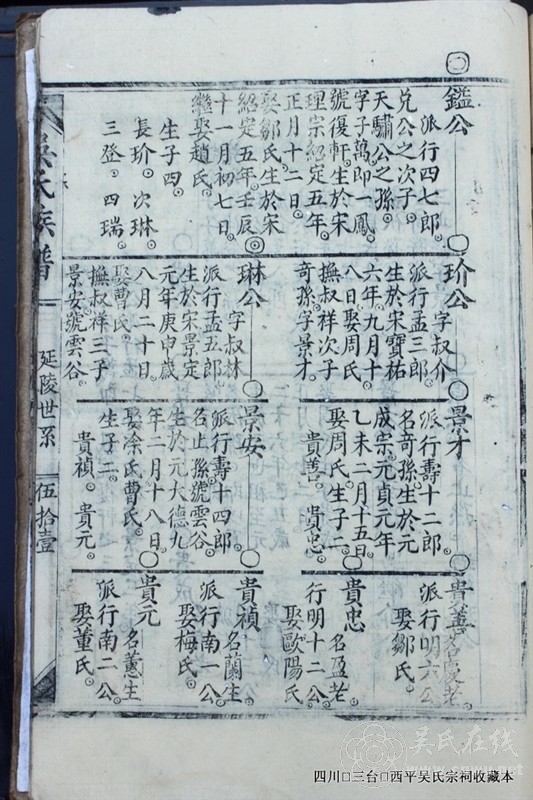 鑑公
派行四七郎
兑公之次子
天驌公之孫
字子萬即一鳳
號復軒生於宋
理宗紹定五年
正月十二日
娶鄒氏生於宋
紹定五年壬辰
十一月初七日
繼娶趙氏
生子四
長玠 次琳
三登 四瑞
玠公
字叔介
派行孟三郎
生於宋寶祐
六年九月十
八日娶周氏
撫叔祥次子
奇孫字景才
琳公
字叔林
派行孟五郎
生於宋景定
元年庚申歲
八月二十日
娶曹氏
撫叔祥三子
景安號雲谷
景才
派行壽十二郎
名奇孫生於元
成宗元貞元年
乙未二月十五日
娶周氏生子二
貴善 貴忠
景安
派行壽十四郎
名止孫號雲谷
生於元大德九
年二月十八日
娶涂氏曹氏
生子二
貴禎 貴元
貴善
派行明六公
娶鄒氏
貴忠
名盈老
行明十二公
娶歐陽氏
貴禎
名蘭生
派行南一公
娶梅氏
貴元
名蕙生
派行南二公
娶董氏
吳氏族譜
延陵世系
伍拾壹
吴氏在线
www.cnwu.net
四川□三台□西平吴氏宗祠收藏本